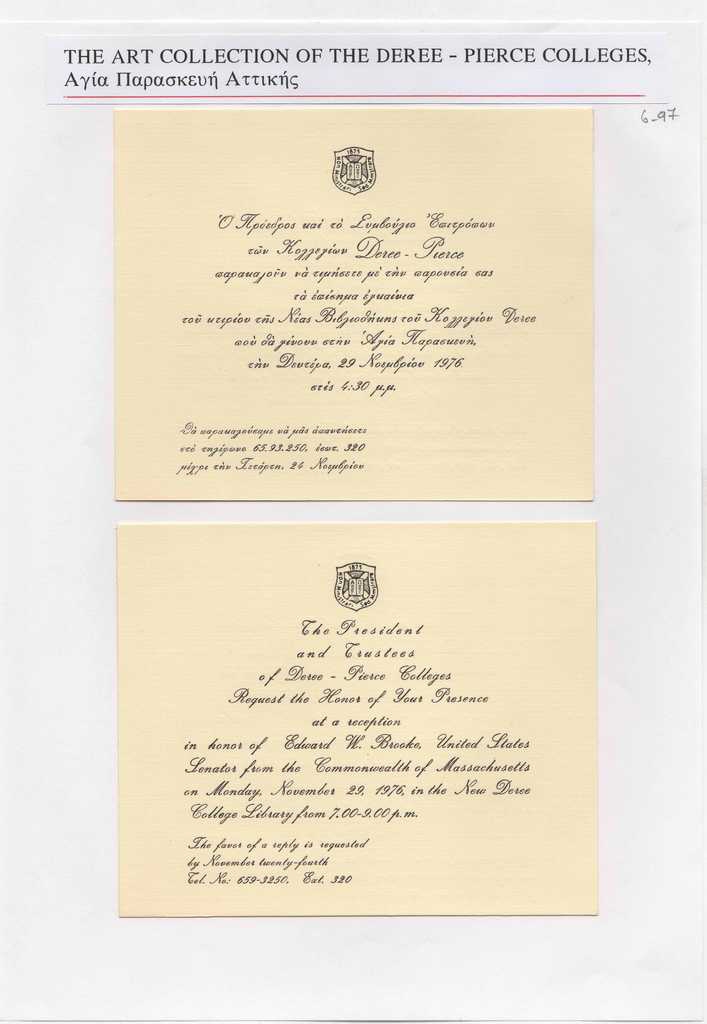 THE ART COLLECTION OF THE DEREE - PIERCE COLLEGES,
Αγία Παρασκευή Αττικής
6-97
1875
Non Ministrari Sed Ministrare
Ὁ Πρόεδρος καί τό Συμβούλιο Ἐπιτρόπων
τῶν Κολλεγίων Deree - Pierce
παρακαλοῦν νά τιμήσετε μέ τήν παρουσία σας
τά ἐπίσημα ἐγκαίνια
τοῦ κτιρίου τῆς Νέας Βιβλιοθήκης τοῦ Κολλεγίου Deree
πού θά γίνουν στήν Ἁγία Παρασκευή,
τήν Δευτέρα, 29 Νοεμβρίου 1976
στίς 4:30 μ.μ.
Θά παρακαλούσαμε νά μᾶς ἀπαντήσετε
στό τηλέφωνο 65.93.250, ἐσωτ. 320
μέχρι τήν Τετάρτη, 24 Νοεμβρίου
1875
Non Ministrari Sed Ministrare
The President
and Trustees
of Deree - Pierce Colleges
Request the Honor of Your Presence
at a reception
in honor of Edward W. Brooke, United States
Senator from the Commonwealth of Massachusetts
on Monday, November 29, 1976, in the New Deree
College Library from 7.00-9.00 p.m.
The favor of a reply is requested
by November twenty-fourth
Tel. No: 659-3250, Ext. 320